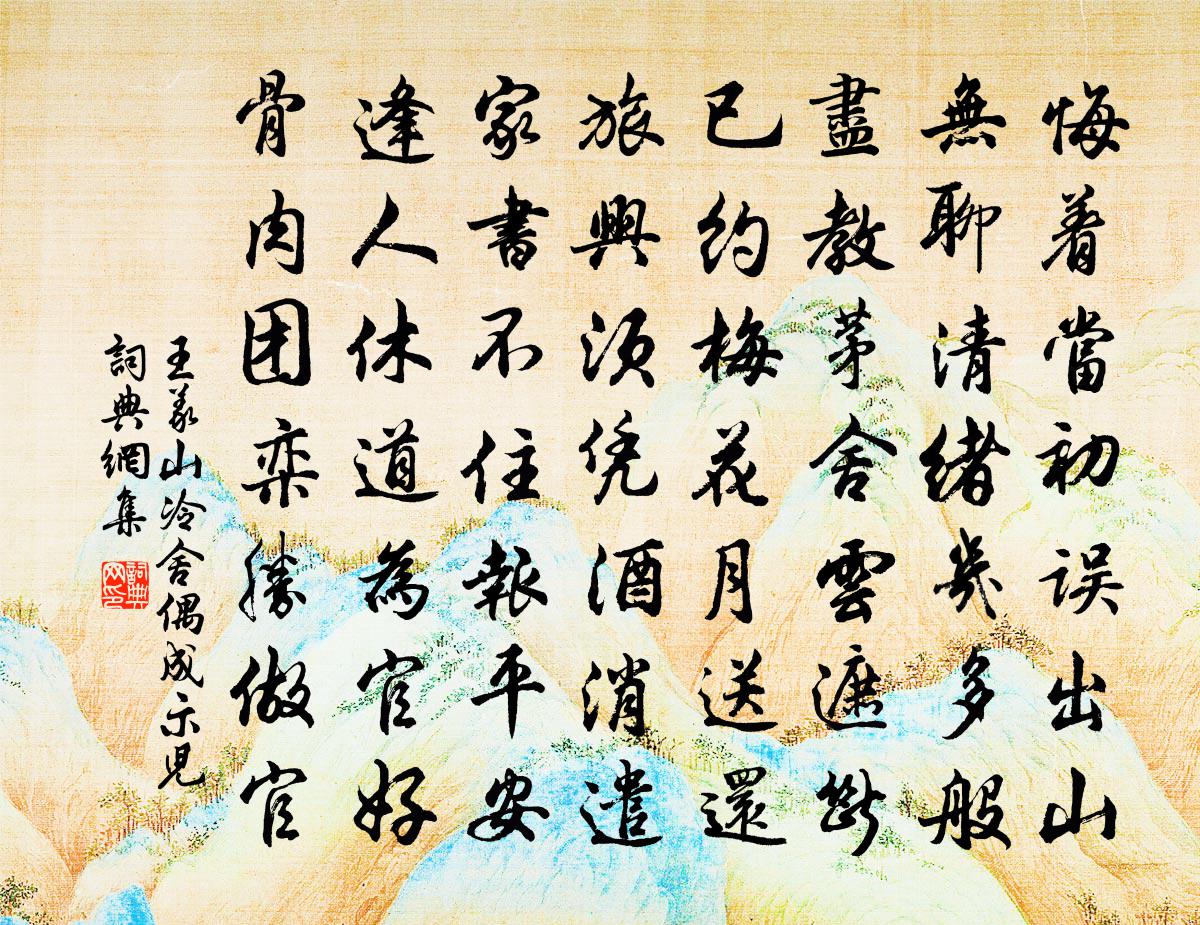 悔着當初误出山
無聊清緒幾多般
盡教茅舍雲遮斷
已約梅花月送還
旅興須凭酒消遣
家書不住報平安
逢人休道為官好
骨肉团栾勝做官
王義山冷舍偶成示兒
詞典網集
詞典
网印